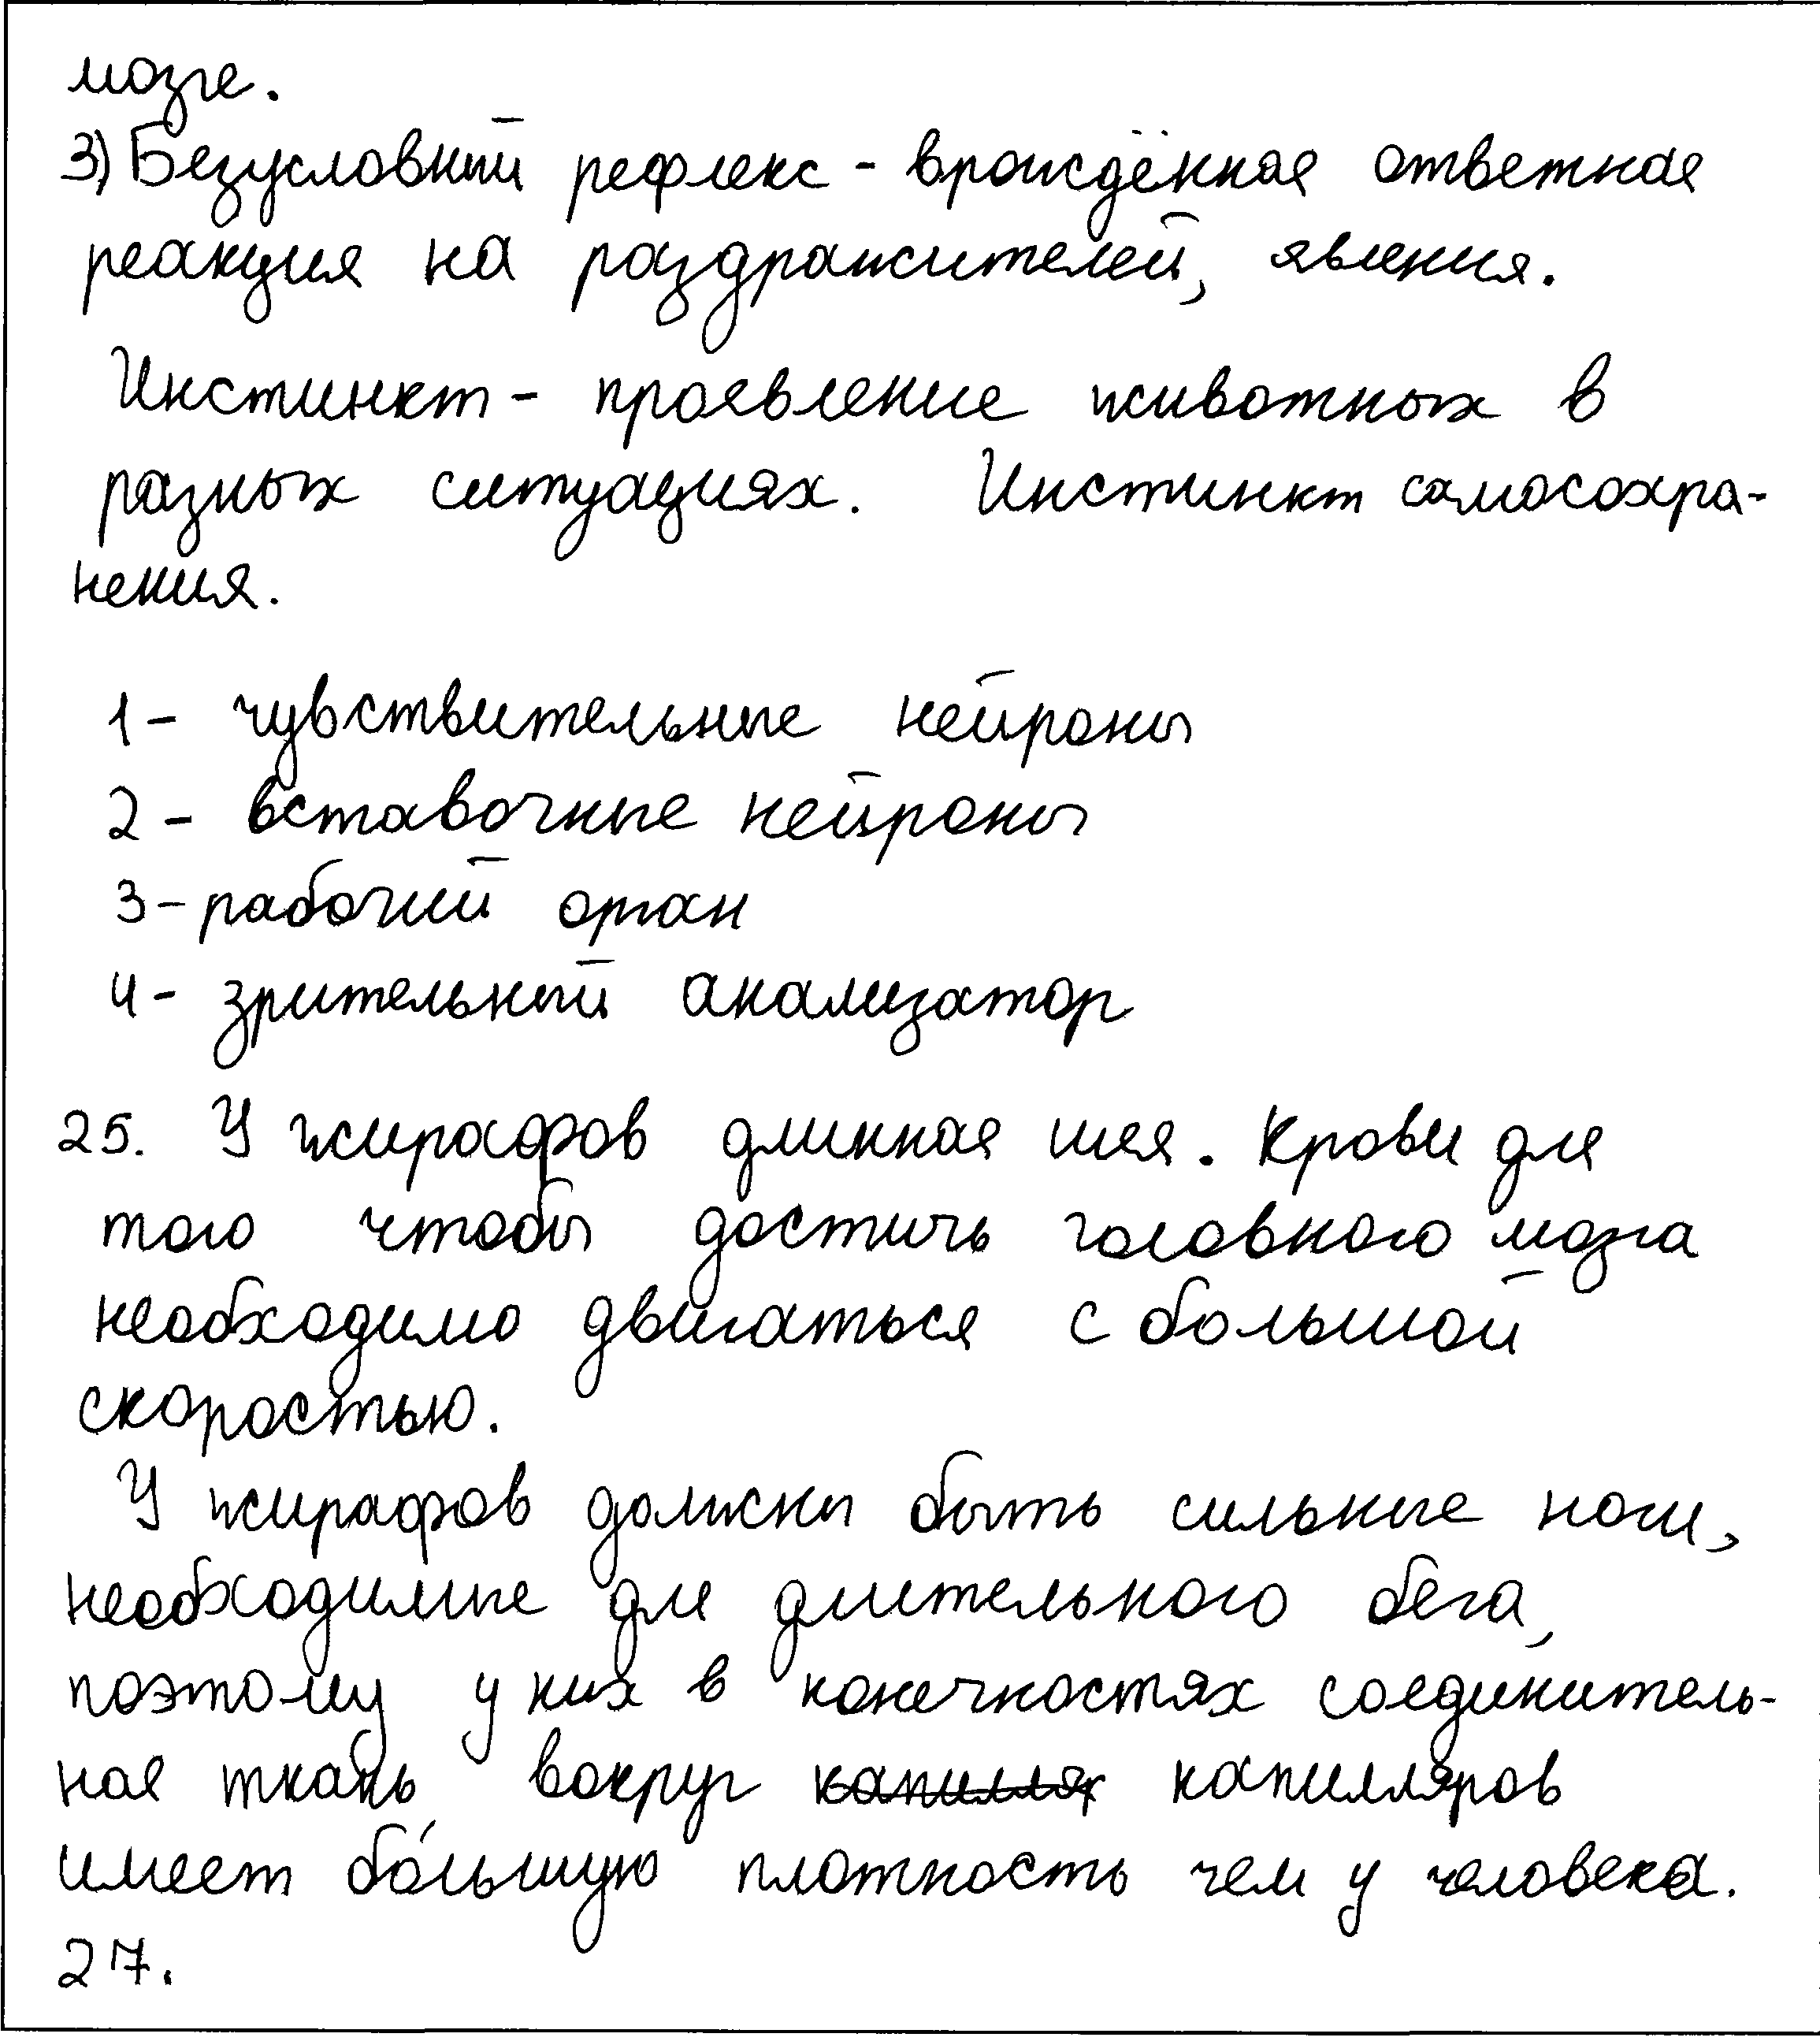 мозге.
3) Безусловный рефлекс - врождённая ответная
реакция на раздражителей, явления.
Инстинкт - проявление животных в
разных ситуациях. Инстинкт самосохра-
нения.
1 - чувствительные нейроны
2 - вставочные нейроны
3 - рабочий орган
4 - зрительный анализатор
25. У жирафов длинная шея. Крови для
того чтобы достичь головного мозга
необходимо двигаться с большой
скоростью.
У жирафов должны быть сильные ноги,
необходимые для длительного бега,
поэтому у них в конечностях соединитель-
ная ткань вокруг капилляр капилляров
имеет бо́льшую плотность чем у человека.
27.